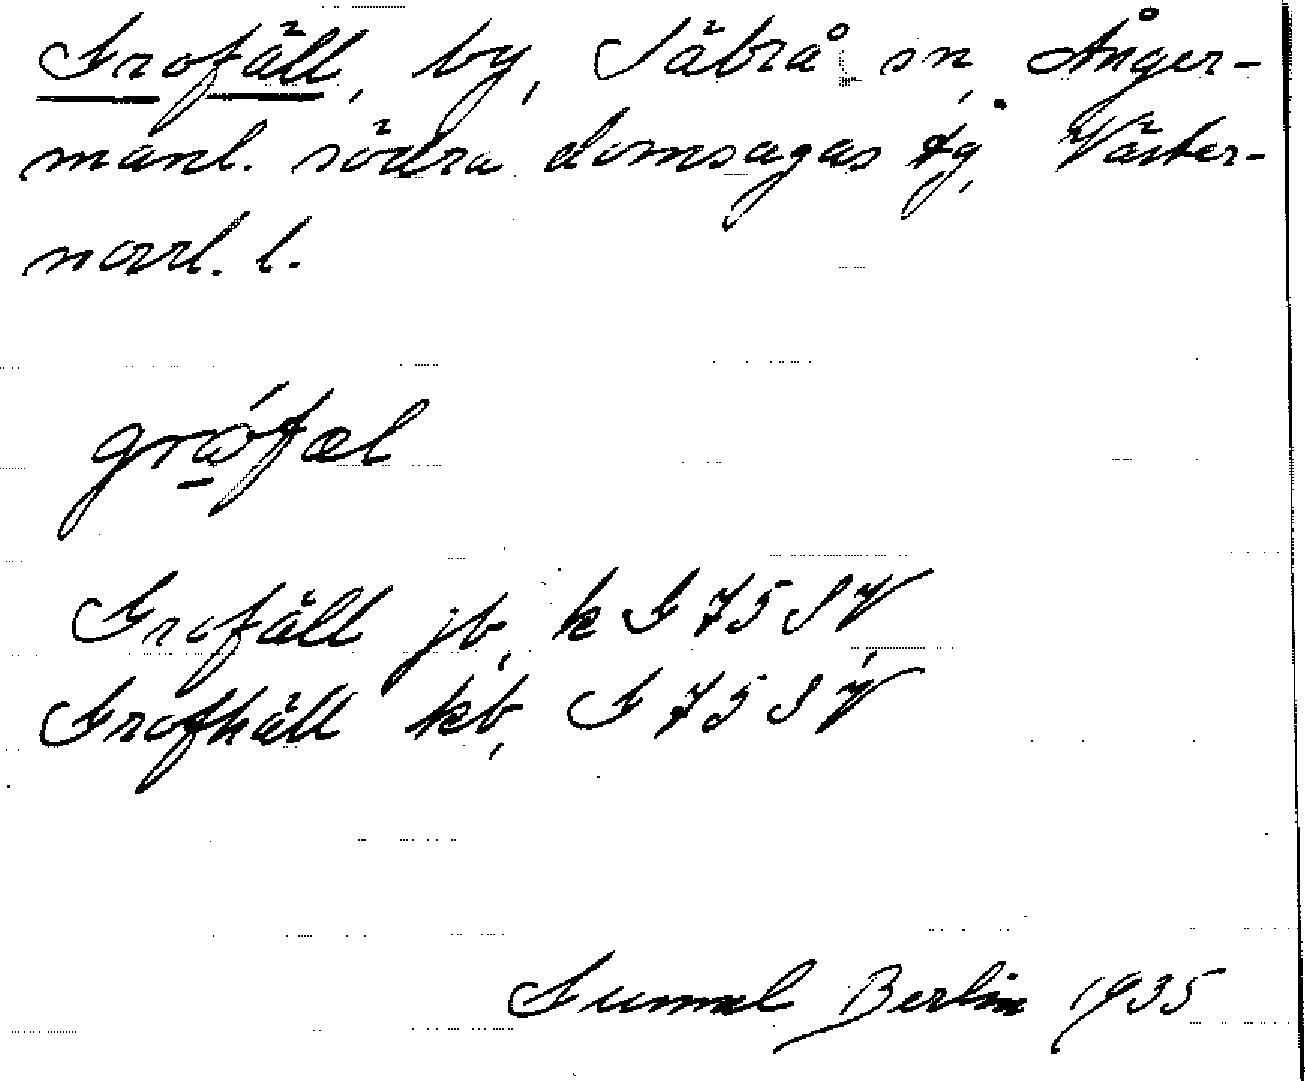 Grofäll, by, Säbrå sn, Ånger-
manl. södra domsagas tg, Väster-
norrl. l.
gråfæl
Grofäll jb, k G 75 S V
Grofhäll kb, G 75 S V
Gunnel Berlin 1935